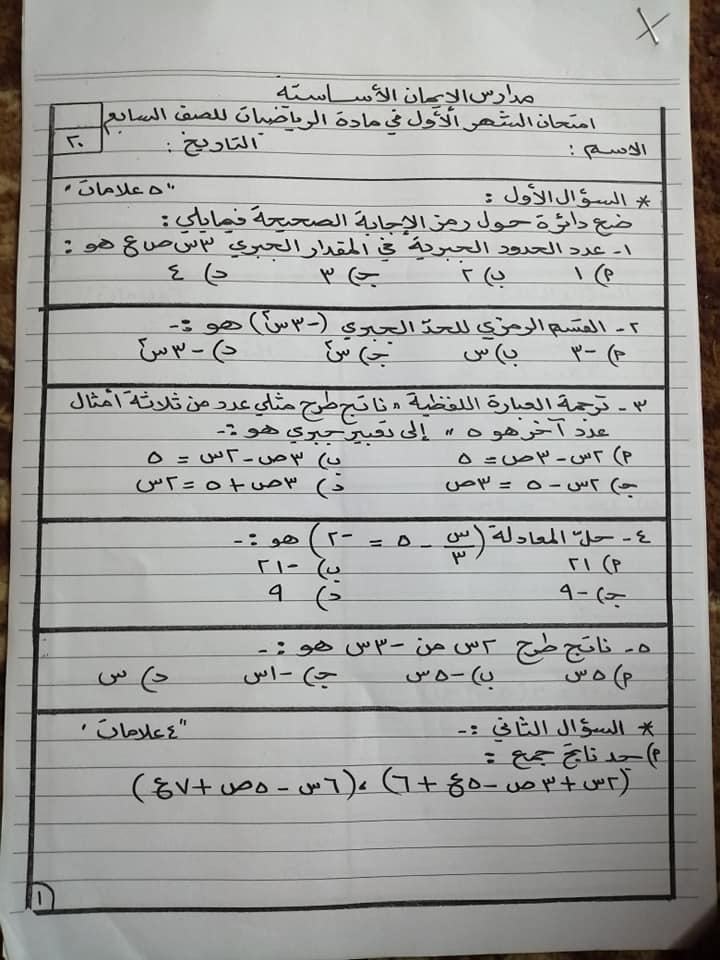 مدارس الإيمان الأساسية
امتحان الشهر الأول في مادة الرياضيات للصف السابع
٢٠
الاسم : التاريخ :
* السؤال الأول : "٥ علامات"
ضع دائرة حول رمز الإجابة الصحيحة فيما يلي :
١- عدد الحدود الجبرية في المقدار الجبري ٣س ص ع هو :
أ) ١ ب) ٢ ج) ٣ د) ٤
٢- القسم الرمزي للحد الجبري (-٣س٢) هو :-
أ) -٣ ب) س ج) س٢ د) -٣س٢
٣- ترجمة العبارة اللفظية " ناتج طرح مثلي عدد من ثلاثة أمثال
عدد آخر هو ٥ " إلى تعبير جبري هو :-
أ) ٢س - ٣ص = ٥ ب) ٣ص - ٢س = ٥
ج) ٢س - ٥ = ٣ص د) ٣ص + ٥ = ٢س
٤- حل المعادلة (س/٣ - ٥ = -٢) هو :-
أ) ٢١ ب) -٢١
ج) -٩ د) ٩
٥- ناتج طرح ٢س من -٣س هو :-
أ) ٥س ب) -٥س ج) -١س د) س
* السؤال الثاني :- "٤ علامات"
أ) جد ناتج جمع :
(٢س + ٣ص - ٥ع + ٦) ، (٦س - ٥ص + ٧ع)
١